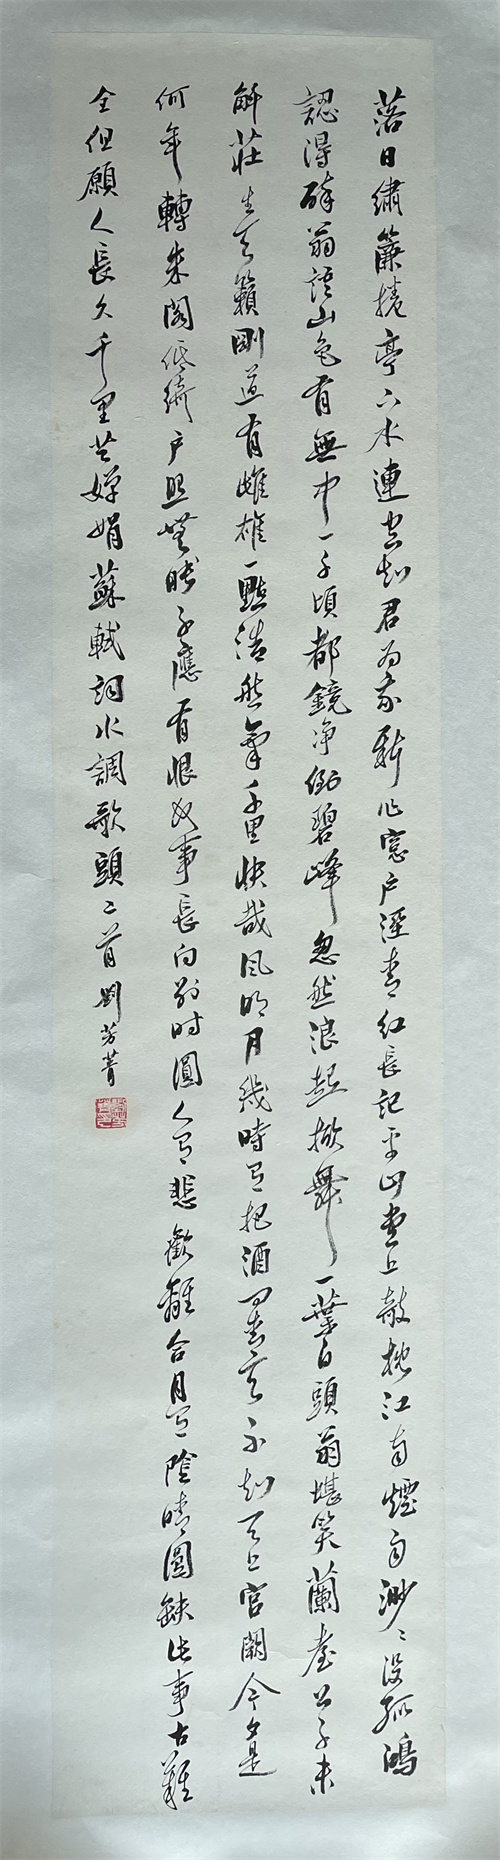 落日繡簾捲亭下水連空知君為我新作窗戶溼青紅長記平山堂上敧枕江南煙雨渺〻沒孤鴻
認得醉翁語山色有無中一千頃都鏡淨倒碧峰忽然浪起掀舞一葉白頭翁堪笑蘭臺公子未
解莊生天籟剛道有雌雄一點浩然氣千里快哉風明月幾時有把酒問青天不知天上宮闕今夕是
何年轉朱閣低綺戶照無眠不應有恨何事長向別時圓人有悲歡離合月有陰晴圓缺此事古難
全但願人長久千里共嬋娟蘇軾詞水調歌頭二首劉芳菁